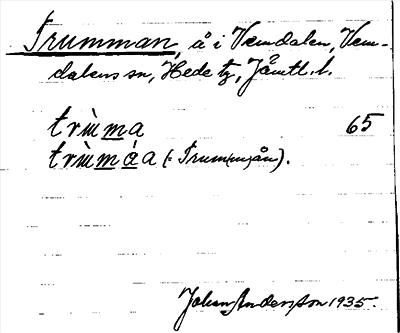 Trumman, å i Vemdalen, Vem-
dalens sn, Hede tg, Jämtl. l.
trùm̲a 65
trùm̲á̲a (= Trum(m)ån).
Johan Andersson 1935.